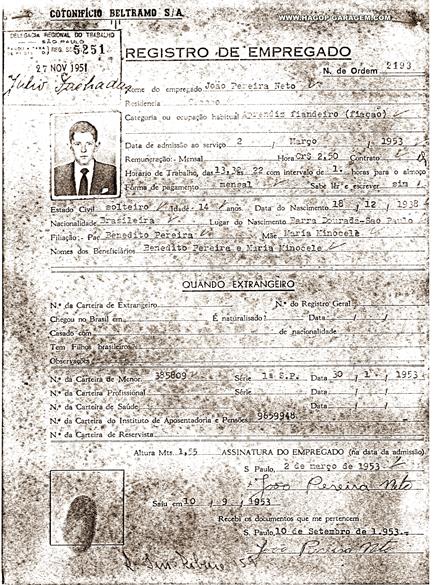 COTONIFÍCIO BELTRAMO S/A.
WWW.HAGOPGARAGEM.COM
DELEGACIA REGIONAL DO TRABALHO
SÃO PAULO
REG. SOB 5251
27 NOV 1951
REGISTRO DE EMPREGADO
N. de Ordem 2193
Nome do empregado João Pereira Neto
Residência
Categoria ou ocupação habitual Aprendiz fiandeiro (fiação)
Data de admissão ao serviço 2 / Março / 1953
Remuneração: Mensal Hora Cr$ 2,50 Contrato
Horário de Trabalho, das 13,30 às 22 com intervalo de 1. horas para o almoço
Forma de pagamento mensal Sabe ler e escrever sim
Estado Civil solteiro Idade 14 anos. Data do Nascimento 18 / 12 / 1938
Nacionalidade Brasileira Lugar do Nascimento Barra Dourada-Sao Paulo
Filiação:- Pai Benedito Pereira Mãe Maria Minocele
Nomes dos Beneficiários Benedito Pereira e Maria Minocele
QUANDO EXTRANGEIRO
N.º da Carteira de Extrangeiro N.º do Registro Geral
Chegou no Brasil em É naturalisado? Data / /
Casado com de nacionalidade
Tem Filhos brasileiros
Observações
N.º da Carteira de Menor 385809 Série 1ª S.P. Data 30 / 1. / 1953
N.º da Carteira Profissional Série Data / /
N.º da Carteira de Saúde Data / /
N.º da Carteira do Instituto de Aposentadoria e Pensões 9659948
N.º da Carteira de Reservista
Altura Mts. 1,55 ASSINATURA DO EMPREGADO (na data da admissão)
S. Paulo, 2 de março de 1953
João Pereira Neto
Saiu em 10 / 9 / 1953
Recebi os documentos que me pertencem
S. Paulo, 10 de Setembro de 1.953.-
João Pereira Neto